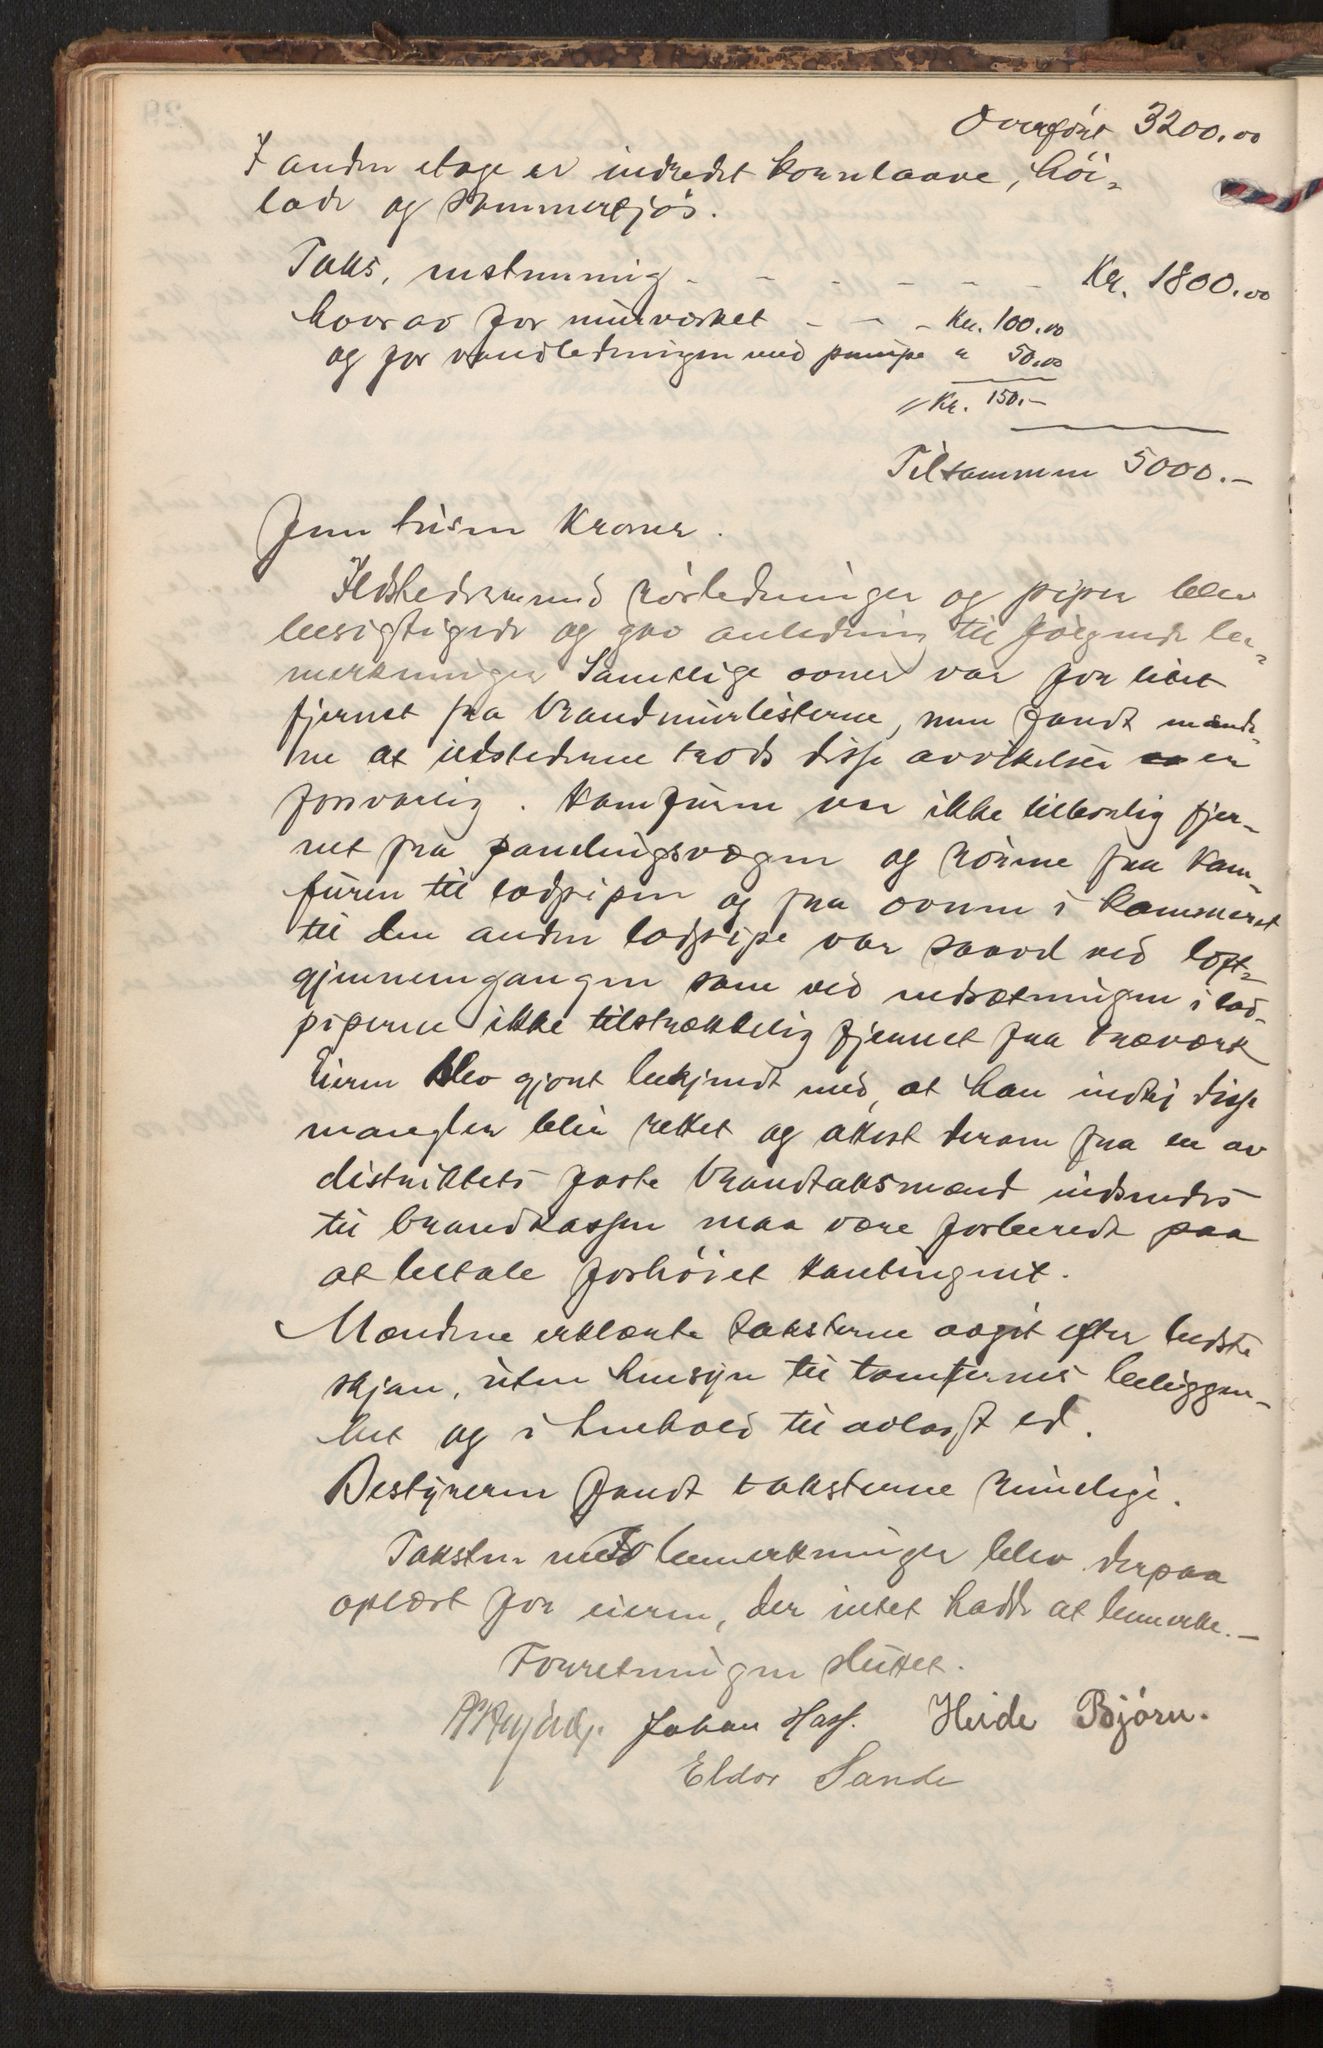 Overført 3200.00
I anden etage er indredet kornlaave, höi-
lade og sommerfjøs.
Taks, nestenming - - - - - - Kr. 1800.00
hvorav for murverket - - - Kr. 100.00
og for vandledningen med pumpe " 50.00
// Kr. 150.-
Tilsammen 5000.-
Fem tusen Kroner.
Ildstederne med rörledninger og piper blev
besigtigede og gav anledning til følgende be-
merkninger Samtlige ovner var for litet
fjernet fra brandmurlisterne, men fandt mænde-
ne at ildstederne trods disse avvikelser er
forsvarlig. Komfuren var ikke tilbørlig fjer-
net fra panelingsvægen og rörene fra kom-
furen til lodpipen og fra ovnen i kammerset
til den anden lodpipe var saavel ved loft-
gjennemgangen som ved indsætningen i lod-
piperne ikke tilstrækkelig fjernet fra træværk
Eieren blev gjort bekjendt med, at han indtil disse
mangler blir rettet og attest derom fra en av
distriktets faste brandtaksmænd indsendes
til brandkassen maa være forberedt paa
at betale forhöiet kontingent.
Mændene erklærte taksterne avgit efter bedste
skjön, uten hensyn til tomternes beliggen-
het og i henhold til avlagt ed.
Bestyreren fandt taksterne rimelige.
Taksten med bemerkninger blev derpaa
oplæst for eieren, der intet hadde at bemerke.-
Forretningen sluttet.
Johan Hass. Heide Bjørn.
Eldor Sande